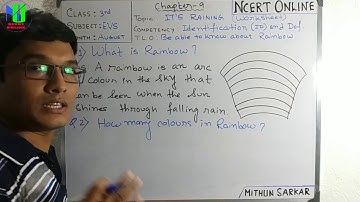 CLASS: 3rd
SUBJECT: EVS
MONTH: AUGUST
Chapter-9
NCERT ONLINE
Topic IT'S RAINING (Worksheet)
Competency Identification (ID) and Def
T L O Be able to know about Rainbow
What is Rainbow?
A rainbow is an arc
colour in the sky that
can be seen when the sun
shines through falling rain
Q.2) How many colours in Rainbow?
/MITHUN SARKAR